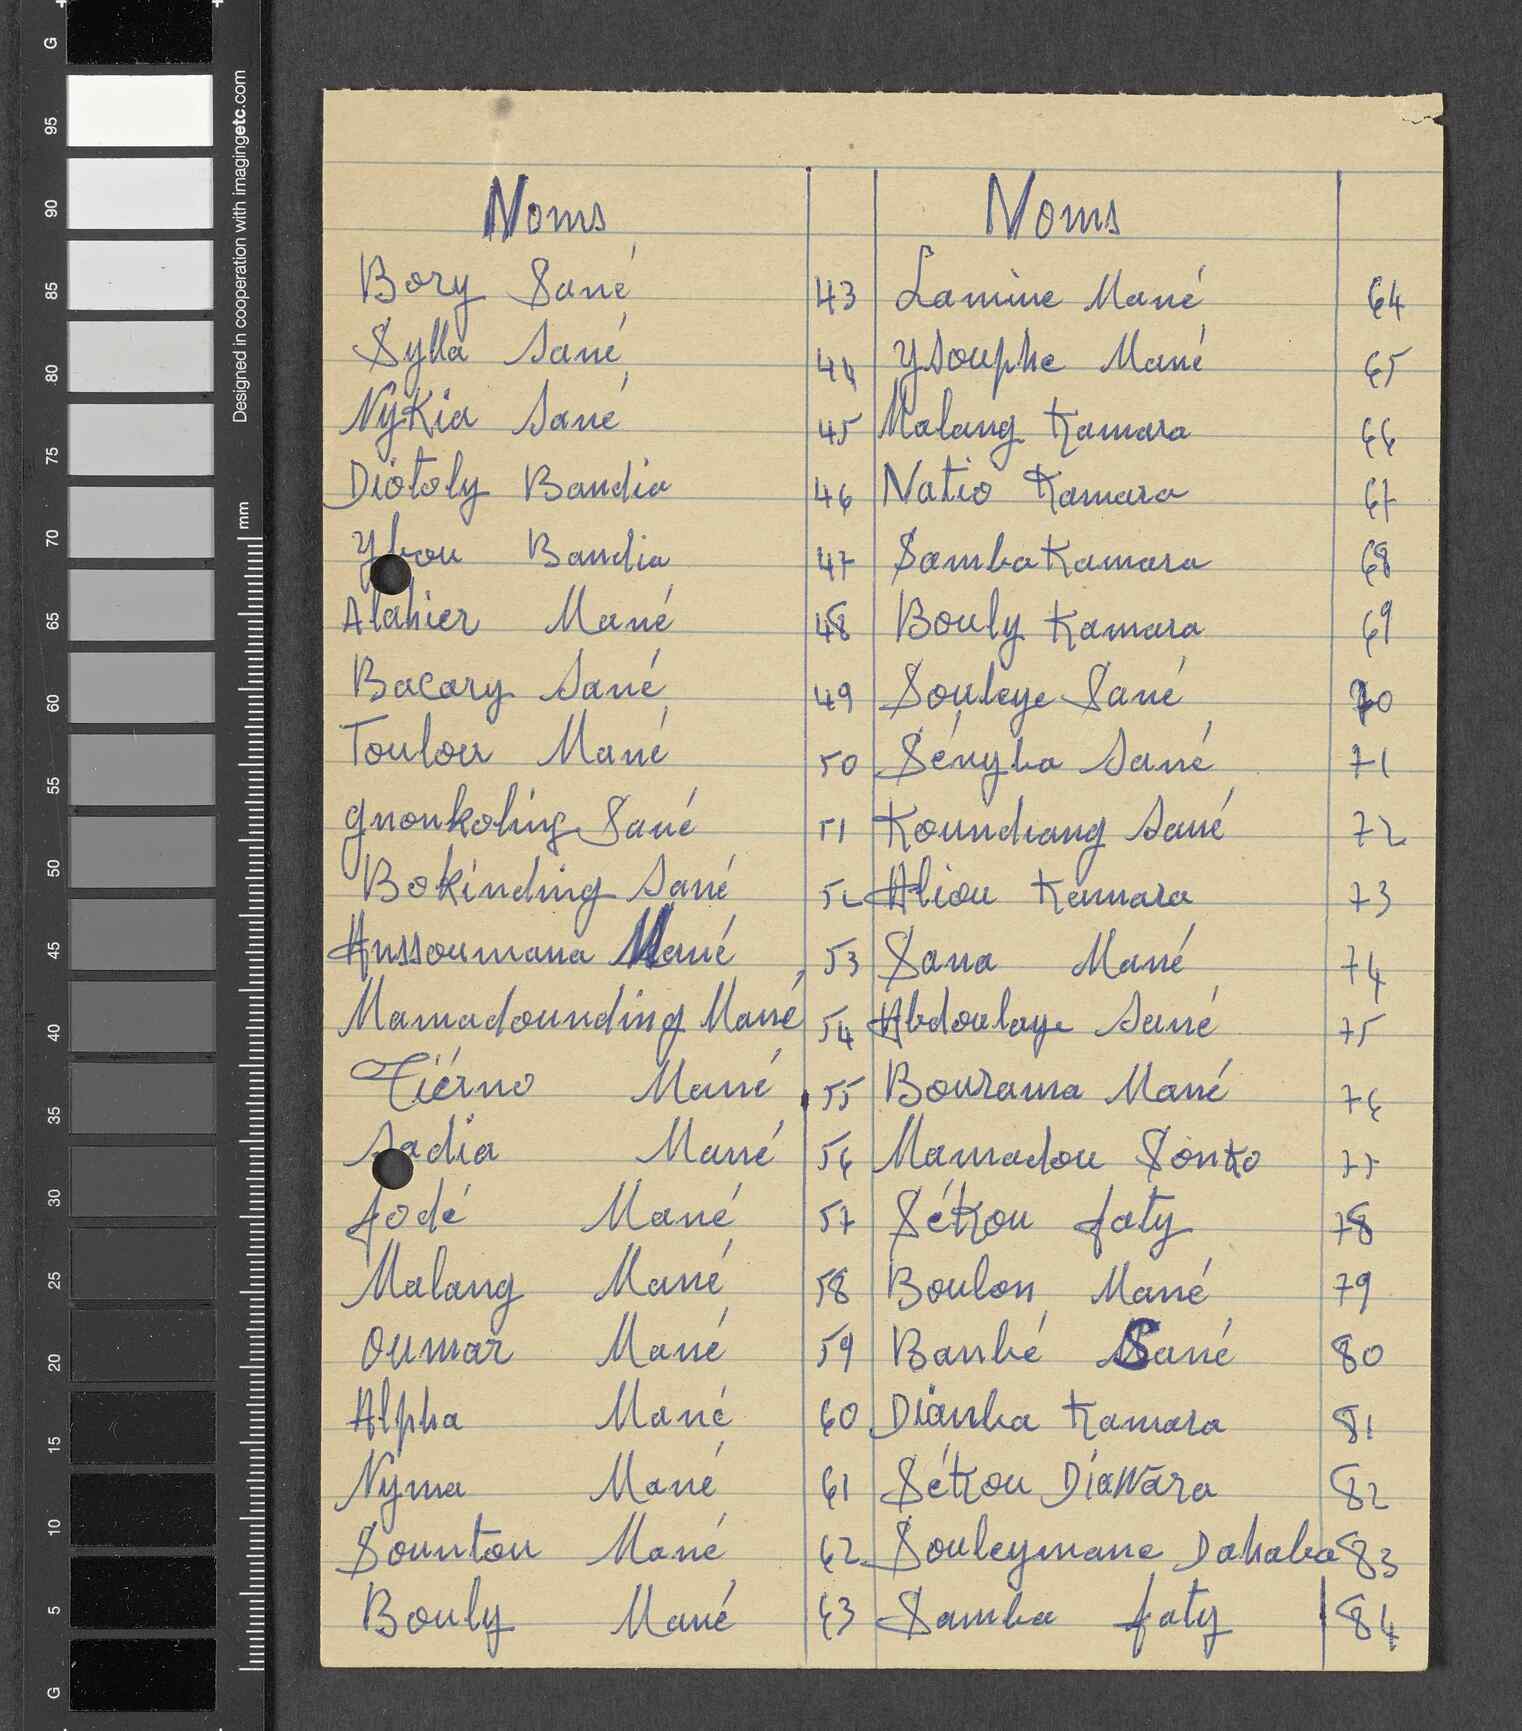 Noms
Bory Sané 43
Sylla Sané 44
Nykia Sané 45
Diotoly Bandia 46
Ybou Bandia 47
Alahier Mané 48
Bacary Sané 49
Toulou Mané 50
gnonkoling Sané 51
Bokinding Sané 52
Anssoumana Mané 53
Mamadounding Mané 54
Tiérno Mané 55
Sadia Mané 56
fodé Mané 57
Malang Mané 58
Oumar Mané 59
Alpha Mané 60
Nyma Mané 61
Sountou Mané 62
Bouly Mané 63
Noms
Lamine Mané 64
Ysouphe Mané 65
Malang Kamara 66
Natio Kamara 67
Samba Kamara 68
Bouly Kamara 69
Souleye Sané 70
Sényba Sané 71
Koundiang Sané 72
Aliou Kamara 73
Sana Mané 74
Abdoulaye Sané 75
Bourama Mané 76
Mamadou Sonko 77
Sékou faty 78
Boulon Mané 79
Banbé Sané 80
Dianba Kamara 81
Sékou Diawara 82
Souleymane Dahaba 83
Samba faty 84
Designed in cooperation with imagingetc.com
mm
mm
G
95
90
85
80
75
70
65
60
55
50
45
40
35
30
25
20
15
10
5
G